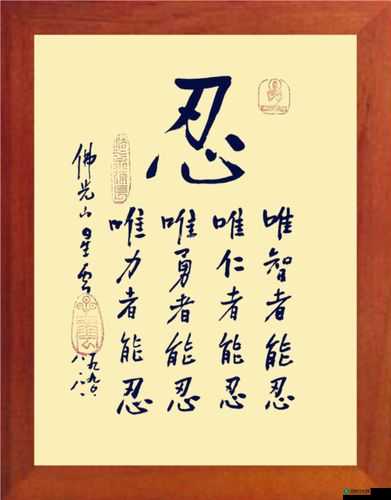 忍
唯智者能忍
唯仁者能忍
唯勇者能忍
唯力者能忍
佛光山星雲
一九九〇